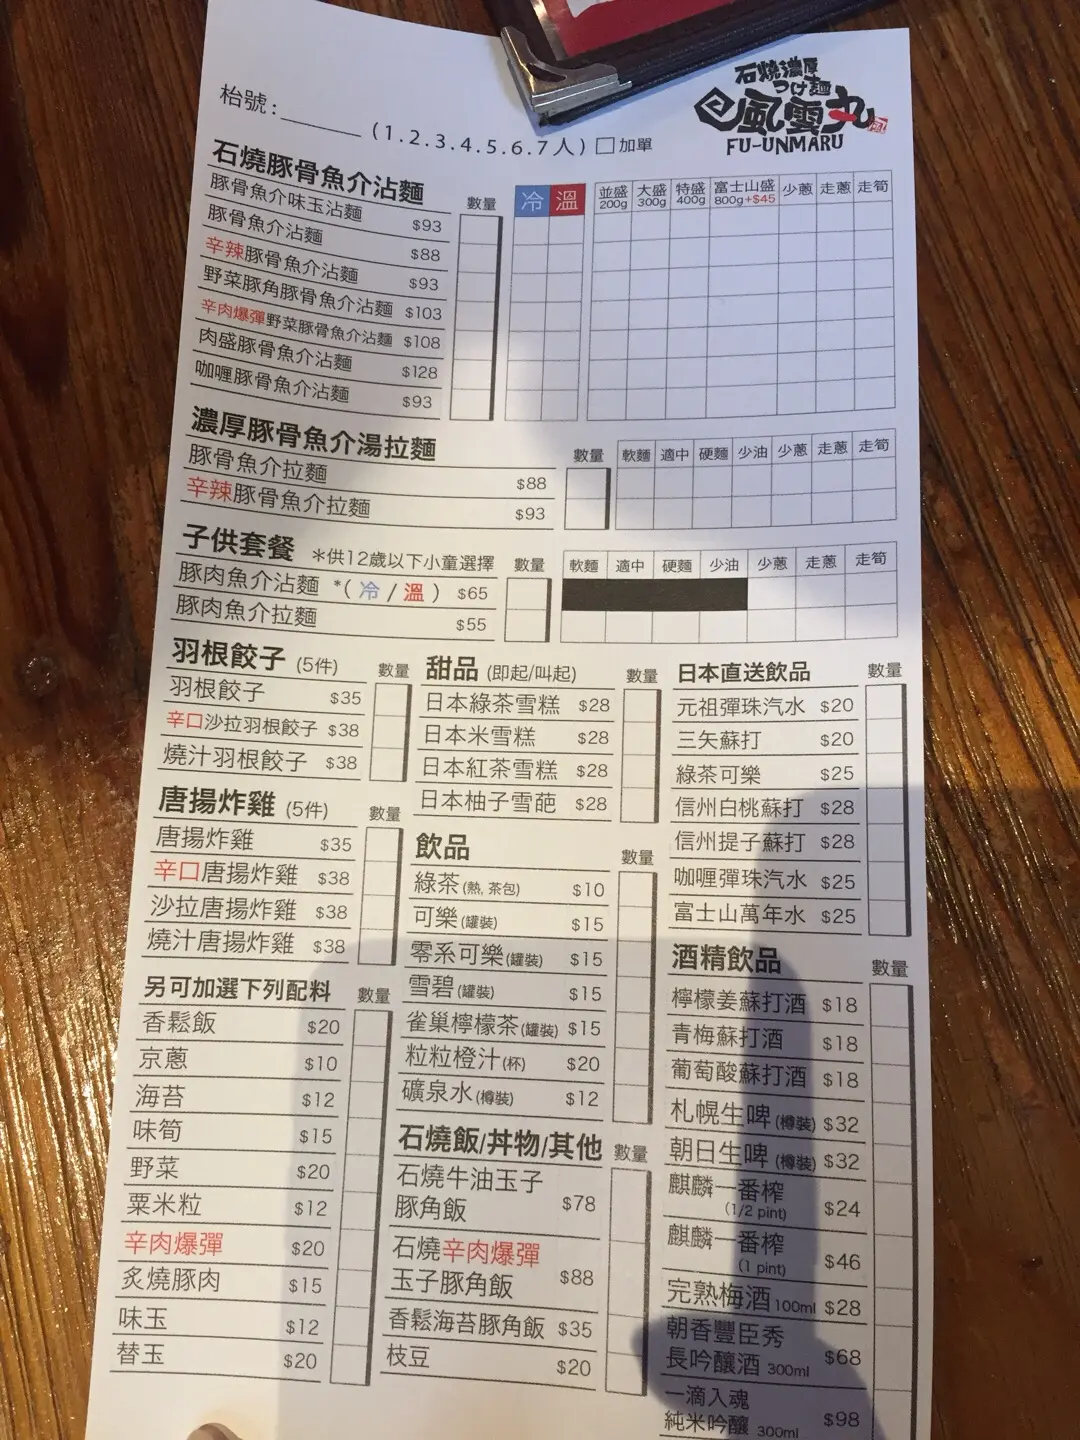 石燒濃厚
つけ麵
風雲丸
FU-UNMARU
枱號:______ (1.2.3.4.5.6.7人) □加單
石燒豚骨魚介沾麵 數量 冷 溫 並盛200g 大盛300g 特盛400g 富士山盛800g+$45 少蔥 走蔥 走筍
豚骨魚介味玉沾麵 $93
豚骨魚介沾麵 $88
辛辣豚骨魚介沾麵 $93
野菜豚角豚骨魚介沾麵 $103
辛肉爆彈野菜豚骨魚介沾麵 $108
肉盛豚骨魚介沾麵 $128
咖喱豚骨魚介沾麵 $93
濃厚豚骨魚介湯拉麵 數量 軟麵 適中 硬麵 少油 少蔥 走蔥 走筍
豚骨魚介拉麵 $88
辛辣豚骨魚介拉麵 $93
子供套餐 *供12歲以下小童選擇 數量 軟麵 適中 硬麵 少油 少蔥 走蔥 走筍
豚肉魚介沾麵 *(冷/溫) $65
豚肉魚介拉麵 $55
羽根餃子 (5件) 數量
羽根餃子 $35
辛口沙拉羽根餃子 $38
燒汁羽根餃子 $38
唐揚炸雞 (5件) 數量
唐揚炸雞 $35
辛口唐揚炸雞 $38
沙拉唐揚炸雞 $38
燒汁唐揚炸雞 $38
另可加選下列配料 數量
香鬆飯 $20
京蔥 $10
海苔 $12
味筍 $15
野菜 $20
粟米粒 $12
辛肉爆彈 $20
炙燒豚肉 $15
味玉 $12
替玉 $20
甜品 (即起/叫起) 數量
日本綠茶雪糕 $28
日本米雪糕 $28
日本紅茶雪糕 $28
日本柚子雪葩 $28
飲品 數量
綠茶(熱, 茶包) $10
可樂(罐裝) $15
零系可樂(罐裝) $15
雪碧(罐裝) $15
雀巢檸檬茶(罐裝) $15
粒粒橙汁(杯) $20
礦泉水(樽裝) $12
石燒飯/丼物/其他 數量
石燒牛油玉子
豚角飯 $78
石燒辛肉爆彈
玉子豚角飯 $88
香鬆海苔豚角飯 $35
枝豆 $20
日本直送飲品 數量
元祖彈珠汽水 $20
三矢蘇打 $20
綠茶可樂 $25
信州白桃蘇打 $28
信州提子蘇打 $28
咖喱彈珠汽水 $25
富士山萬年水 $25
酒精飲品 數量
檸檬姜蘇打酒 $18
青梅蘇打酒 $18
葡萄酸蘇打酒 $18
札幌生啤(樽裝) $32
朝日生啤(樽裝) $32
麒麟一番榨
(1/2 pint) $24
麒麟一番榨
(1 pint) $46
完熟梅酒100ml $28
朝香豐臣秀
長吟釀酒 300ml $68
一滴入魂
純米吟釀 300ml $98